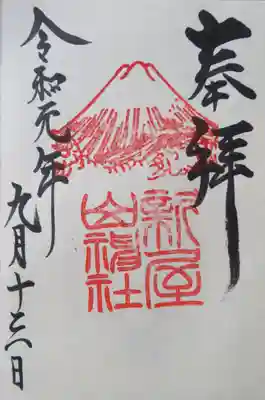 奉拝
新屋
山神社
令和元年九月十三日